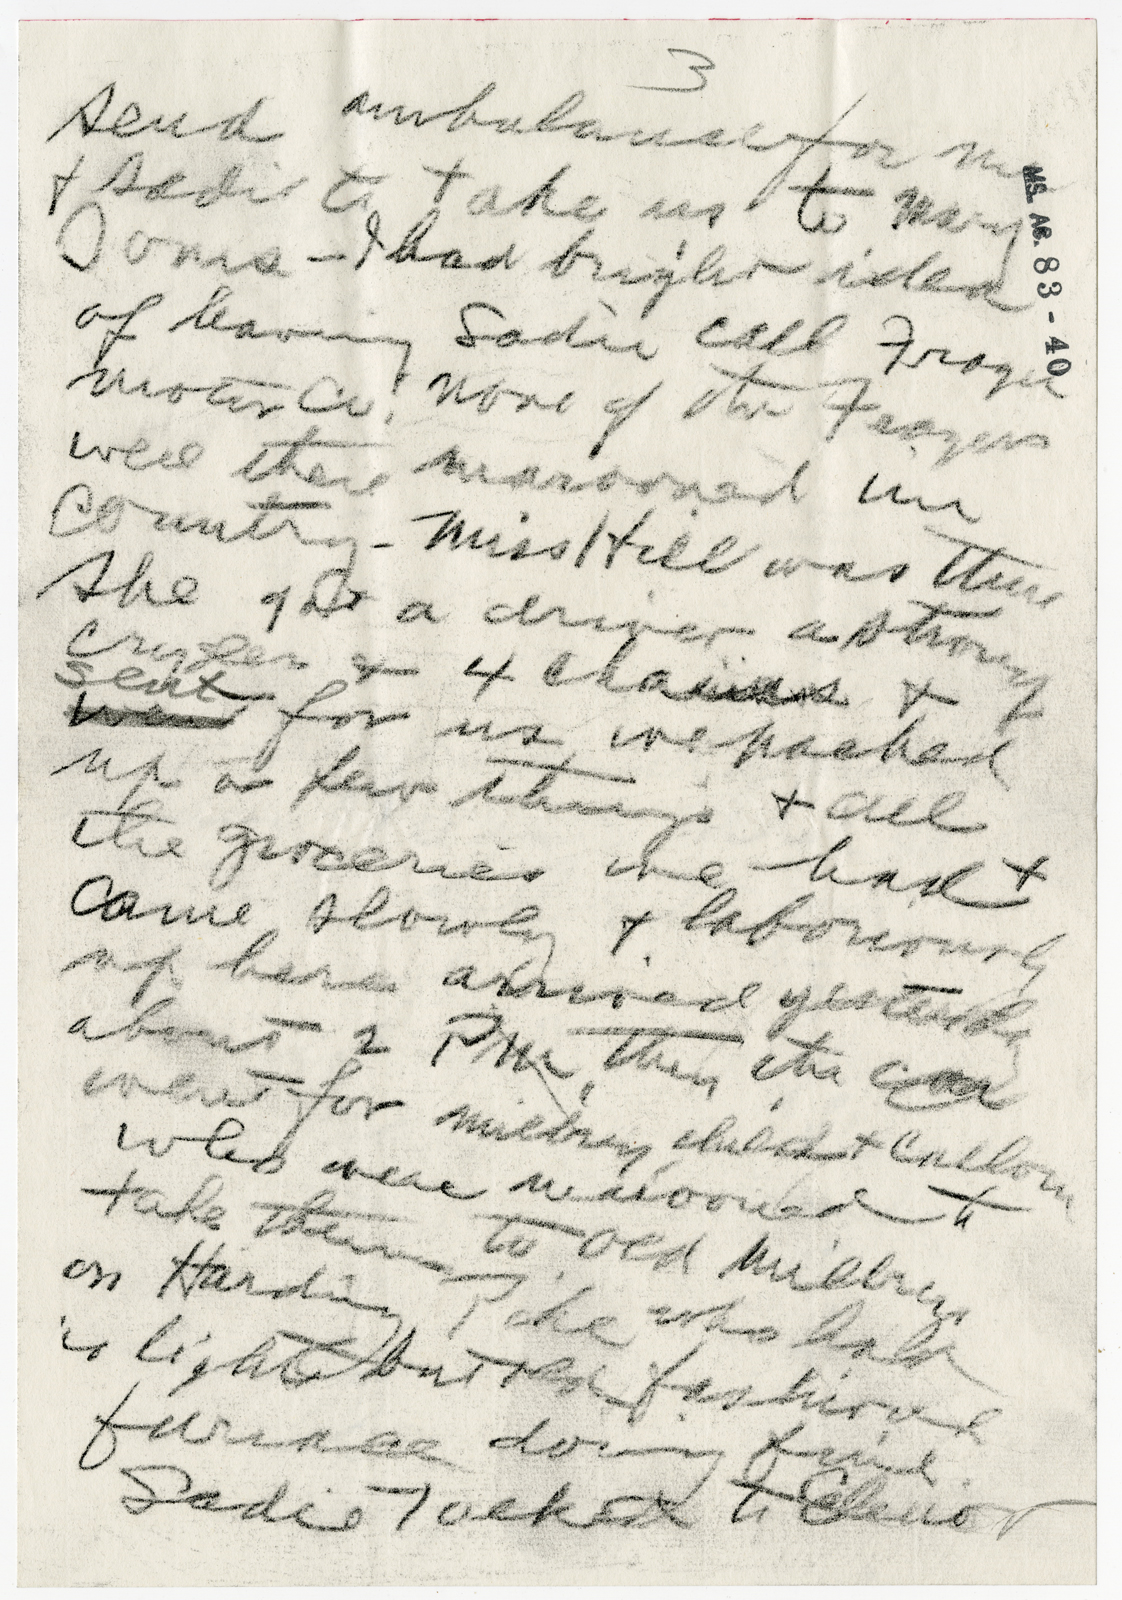 3
send ambulance for me
& Sadie to take us to Mary
Toms - I had bright idea
of having Sadie call Frazer
Motor Co. none of the Frazers
were there marooned in
Country - Miss Hill was there
She got a driver a strong
& 4 chains &
sent for us we packed
up a few things & all
the groceries we had &
Came slowly & laboriously
up here arrived yesterday
about 2 PM, then the car
went for Mildreys child &
who were marooned to
take them to Old Mildrey
on Harding Pike who had
no lights but old fashioned
furnace doing fine.
Sadie to Elinor
MS. AC. 83-40